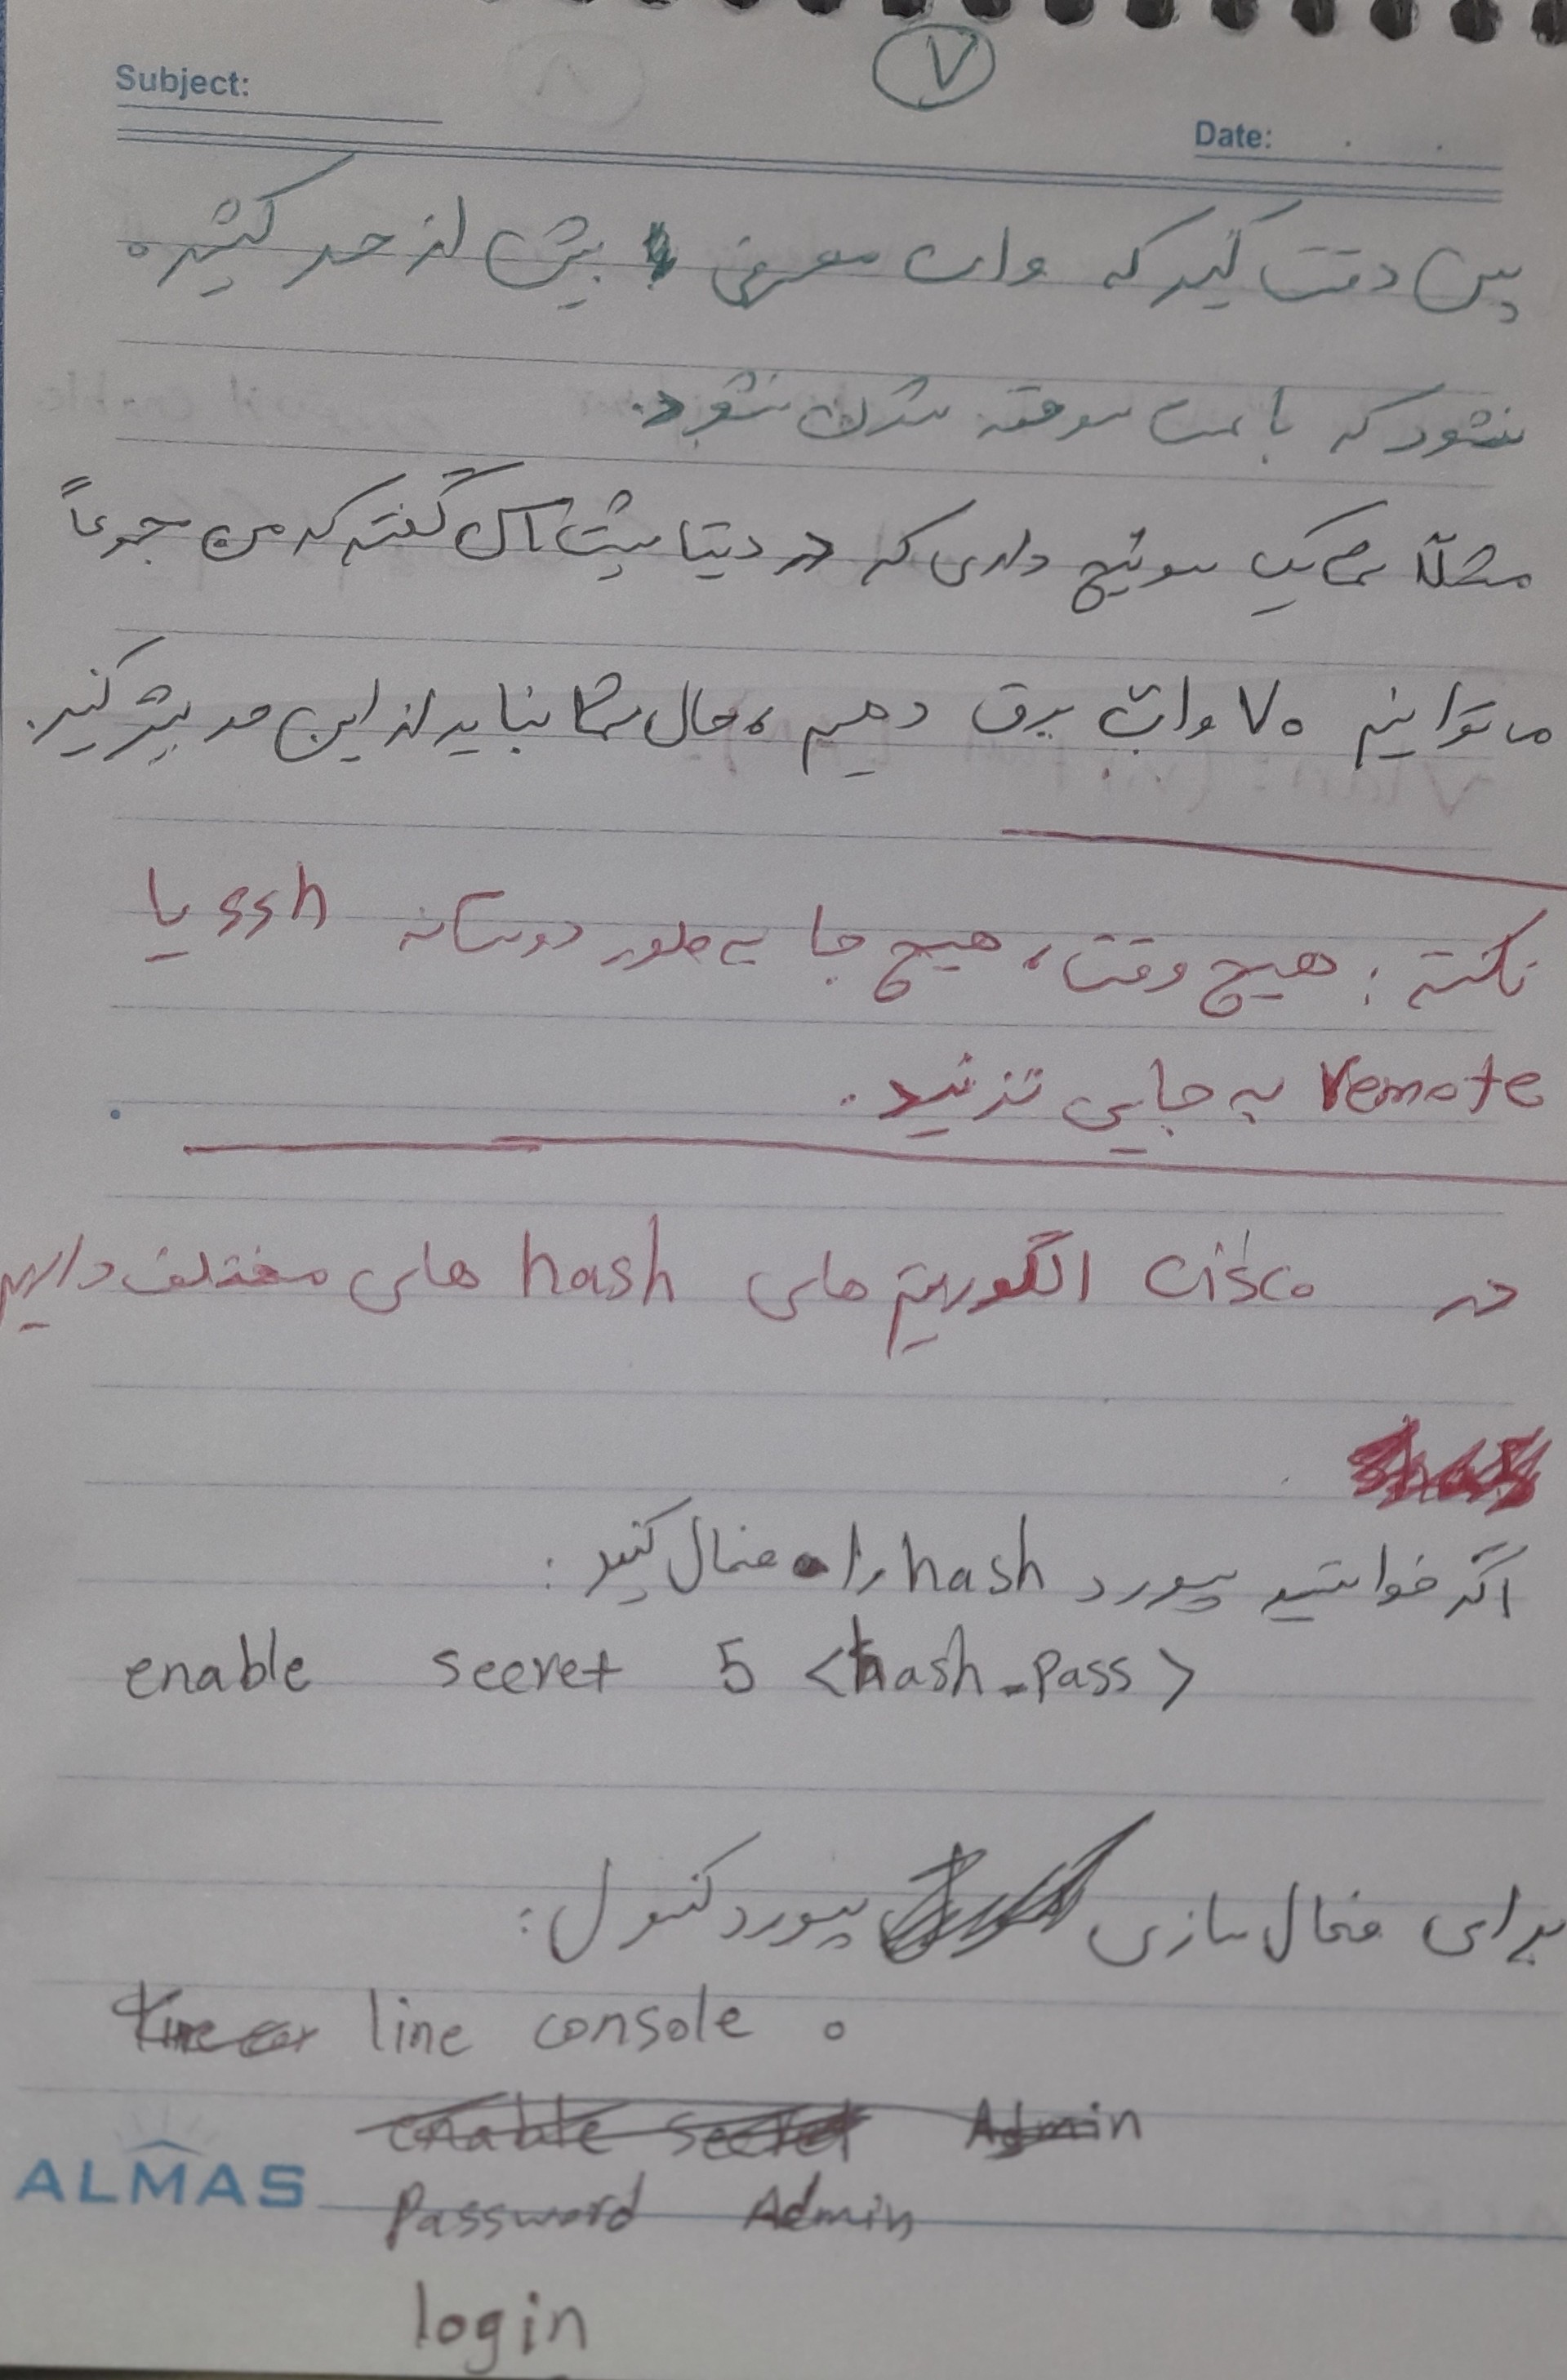 ۷
Subject:
Date:
پس دقت کنید که وات مصرفی بیش از حد کشیده
نشود که باعث سوخته شدن نشود.
مثلاً شما یک سوئیچ داری که در دیتا شیت اش گفته که من جموعاً
می توانیم ۷۰ وات برق دهیم، حال شما نباید از این حد بیشتر کنید.
نکته: هیچ وقت، هیچ جا به طور دوستانه ssh یا
remote به جایی نزنید.
در cisco الگوریتم های hash های مختلف داریم
اگر خواستید پسورد hash را فعال کنید:
enable secret 5 <hash_pass>
برای فعال سازی پسورد کنسول:
line console 0
enable secret Admin
Password Admin
ALMAS
login